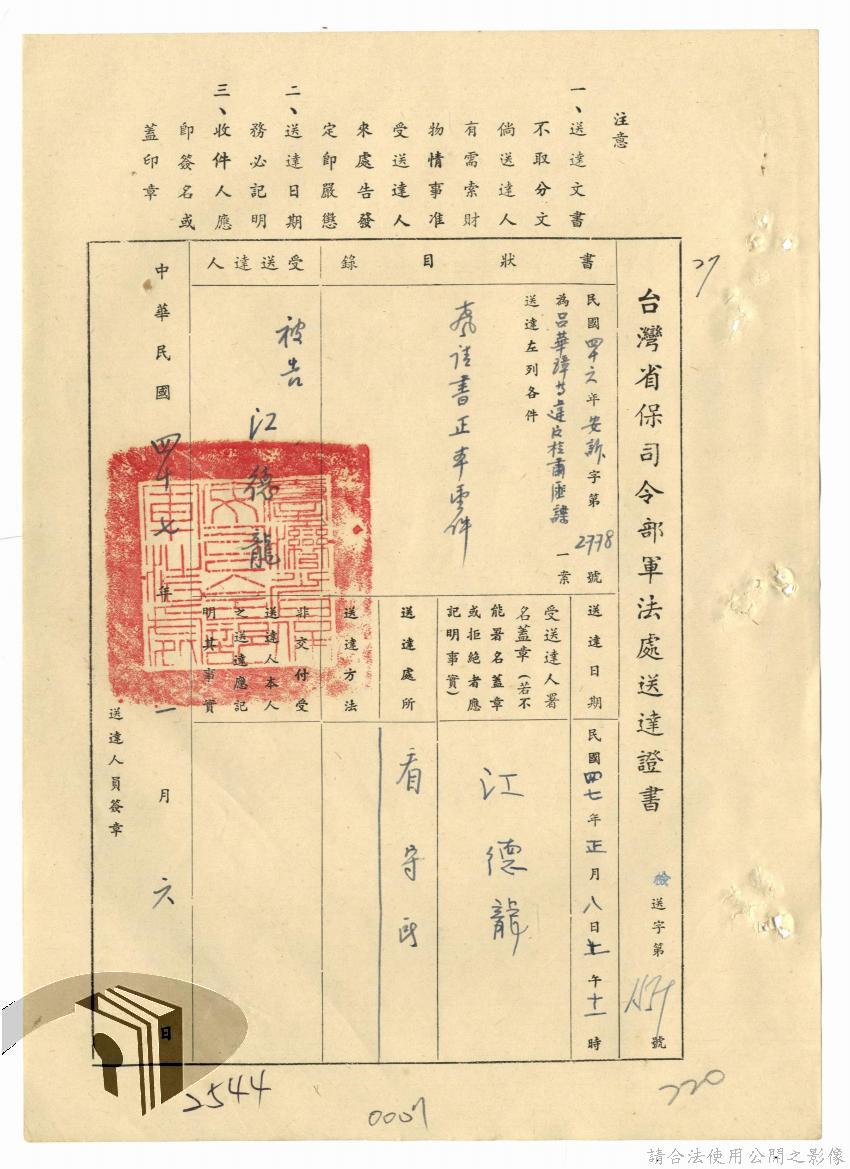 注意
一、送達文書
不取分文
倘送達人
有需索財
物情事准
受送達人
來處告發
定即嚴懲
二、送達日期
務必記明
三、收件人應
即簽名或
蓋印章
台灣省保司令部軍法處送達證書
檢送字第號
書狀目錄
民國四十六年安訴字第2778號
為呂華璋等違反一案
送達左列各件
書正本壹件
受送達人
被告 江德龍
送達日期
民國四七年正月八日上午十一時
受送達人署
名蓋章(若不
能署名蓋章
或拒絕者應
記明事實)
江德龍
送達處所
看守所
送達方法
非交付受
送達人本人
之送達應記
明其事實
中華民國四十七年一月六日
送達人員簽章
27
2544
0007
220
請合法使用公開之影像